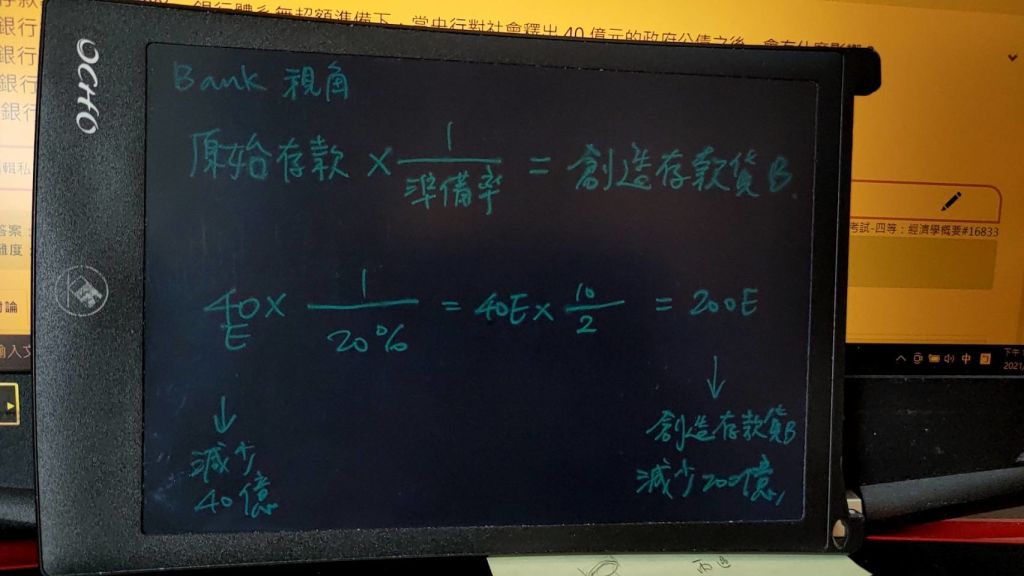 銀行體系無超額準備下，當央行對社會釋出 40 億元的政府公債之後，會有什麼影響
存款
銀行
銀行
銀行
銀行
OCHO
Bank 視角
原始存款 × 1/準備率 = 創造存款貨B
考試-四等：經濟學概要#16833
40E × 1/20% = 40E × 10/2 = 200E
討論
輸入文
中
下午
2021/
↓
減少
40億
↓
創造存款貨B
減少200億